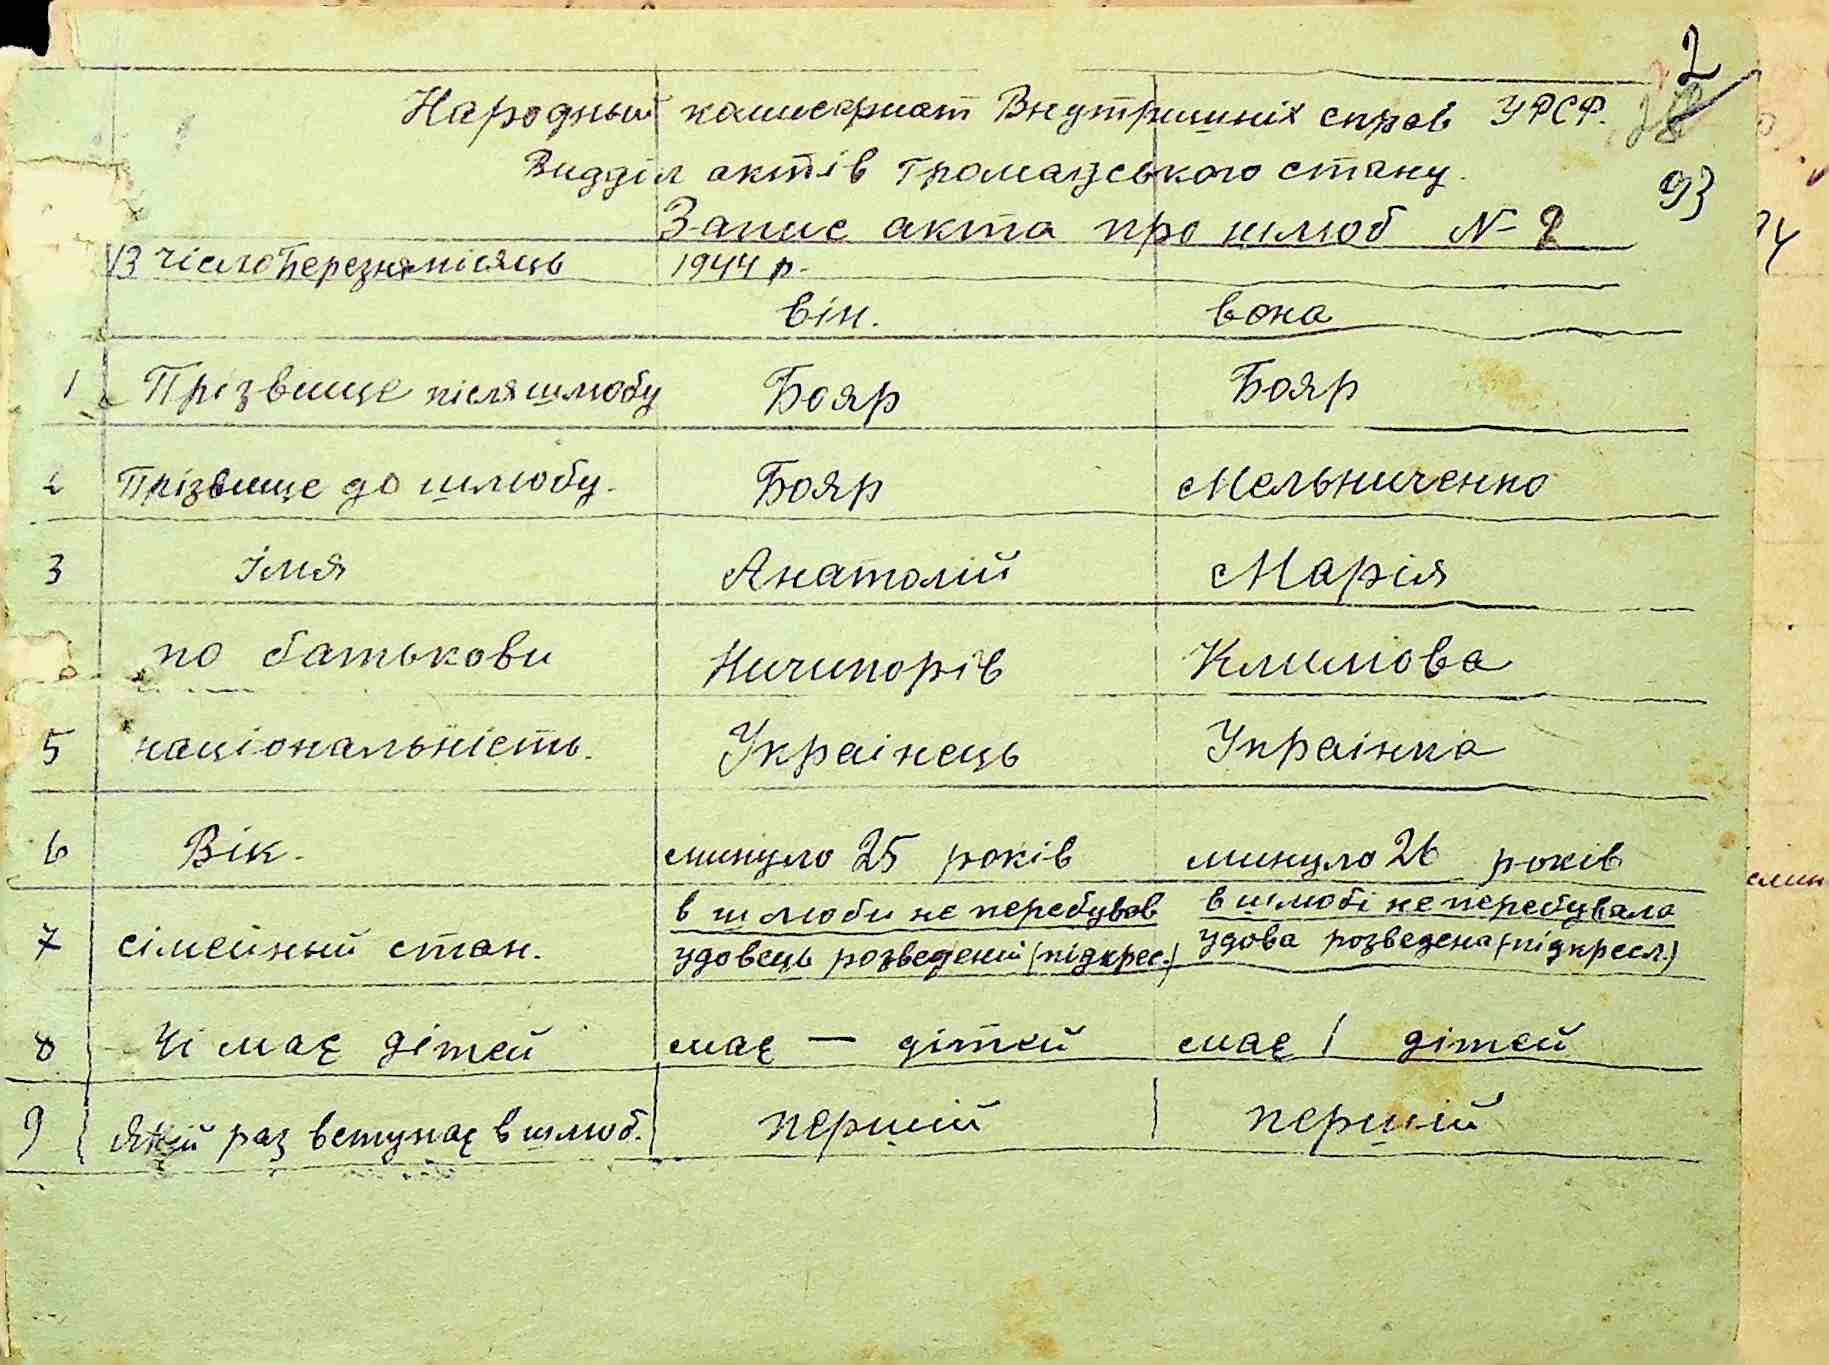 2
Народный комисариат Внутришніх справ УРСР.
93
Видділ актів громадського стану.
Запис акта про шлюб № 2
13 число Березня місяць 1944 р.
він. вона
1 Прізвище після шлюбу Бояр Бояр
2 Прізвище до шлюбу. Бояр Мельниченко
3 імя Анатолій Марія
по батькови Ничипорів Климова
5 національність. Украінець Украінка
6 Вік. минуло 25 років минуло 26 років
7 сімейный стан. в шлюби не перебував в шлюбі не перебувала
удовець розведений (підкрес.) удова розведена (підкресл.)
8 Чі має дітей має — дітей має 1 дітей
9 Якій раз вступає в шлюб. першій першій